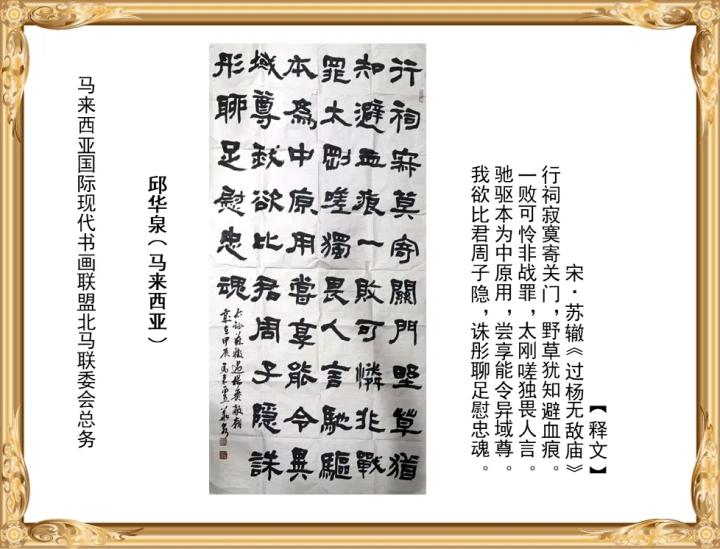 【释文】
宋·苏辙《过杨无敌庙》
行祠寂寞寄关门,野草犹知避血痕。
一败可怜非战罪,太刚嗟独畏人言。
驰驱本为中原用,尝享能令异域尊。
我欲比君周子隐,诛彤聊足慰忠魂。
行祠寂莫寄關門野草猶
知避血痕一敗可憐非戰
罪太剛嗟獨畏人言馳驅
本為中原用嘗享能令異
域尊我欲比君周子隱誅
彤聊足慰忠魂
蘇轍過楊無敵廟
歲在甲辰
邱华泉(马来西亚)
马来西亚国际现代书画联盟北马联委会总务